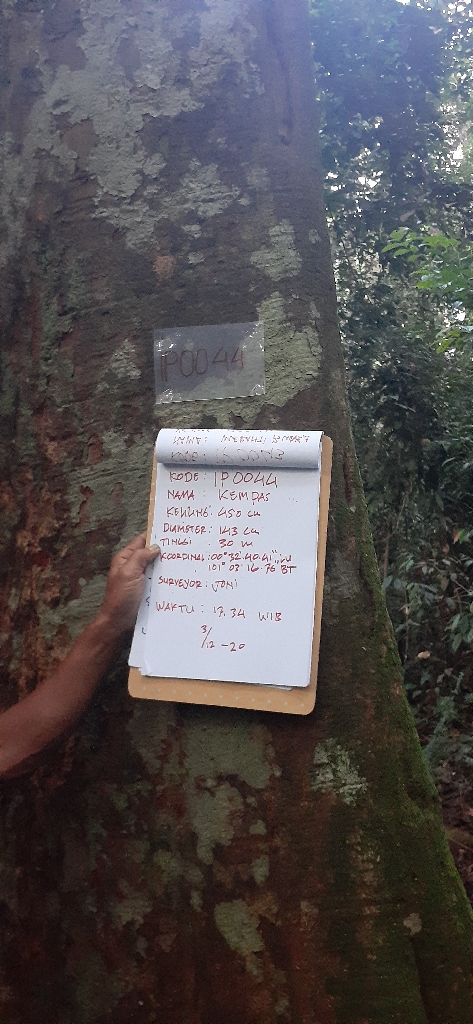 1P0044
KODE: 1P0044
NAMA: KEMDAS
KELILING: 450 CM
DIAMETER: 143 CM
TINGGI: 30 M
KOORDINAT: 00° 32' 40.41" LU
101° 03' 16.76" BT
SURVEYOR: JONI
WAKTU: 13.34 WIB
3/12-20